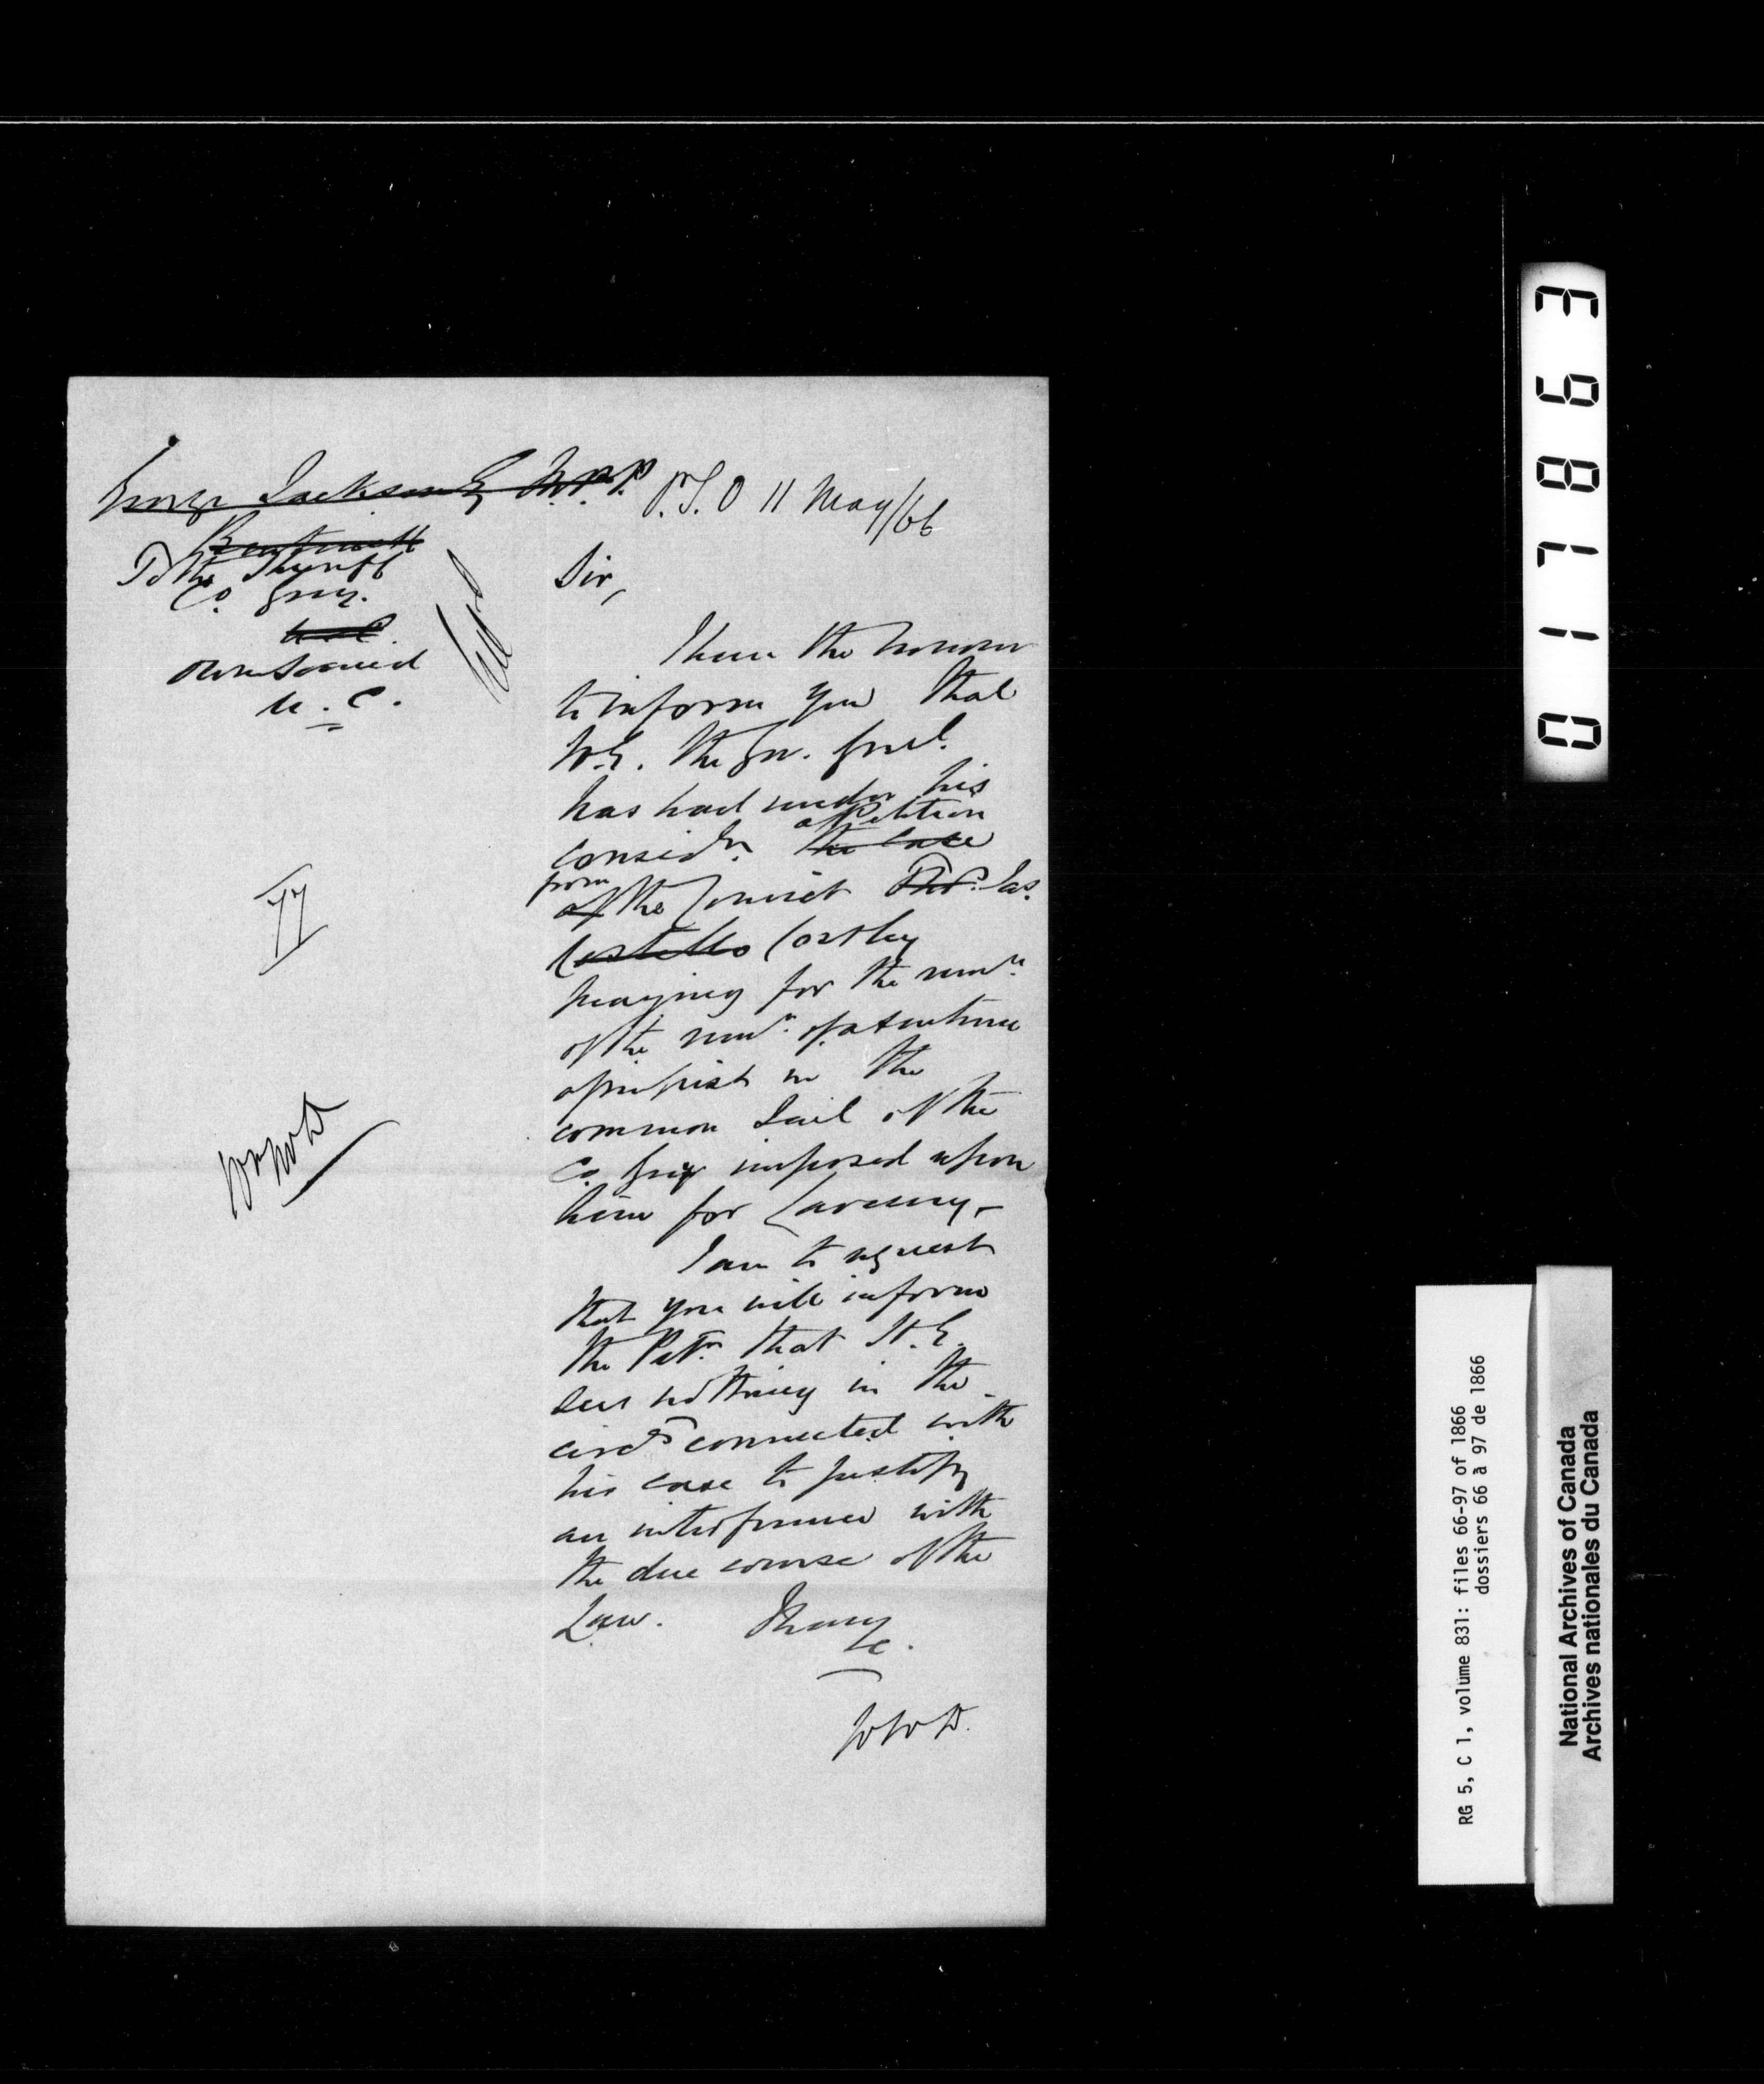 George Jackson Esq M.P.P.
P.S.O 11 May/66
Bentinck
To the Sheriff
Co Grey.
U.C.
Owen Sound
U.C.
Sir,
I have the honour
to inform you that
H.E. the Gov. Genl.
has had under his
considn. the case a Petition
of from the Convict Thos. Jas.
Costello Costley
praying for the remn.
of the remr. of a sentence
of imprist in the
common Jail of the
Co Grey imposed upon
him for Larceny,
I am to request
that you will inform
the Petr. that H.E.
sees nothing in the
circs connected with
his case to justify
an interference with
the due course of the
Law. I have
&c.
017863
RG 5, C 1, volume 831: files 66-97 of 1866
dossiers 66 à 97 de 1866
National Archives of Canada
Archives nationales du Canada